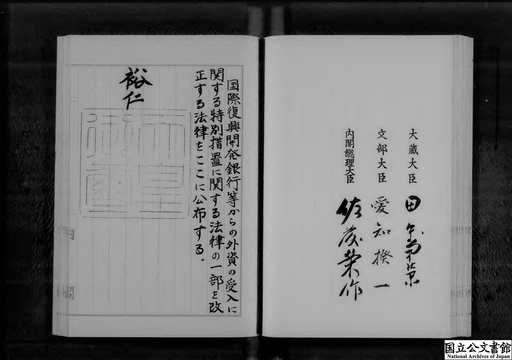 国際復興開発銀行等からの外資の受入に
関する特別措置に関する法律の一部を改
正する法律をここに公布する。
裕仁
天皇
御璽
大蔵大臣
文部大臣 愛知揆一
内閣総理大臣 佐藤栄作
国立公文書館
National Archives of Japan